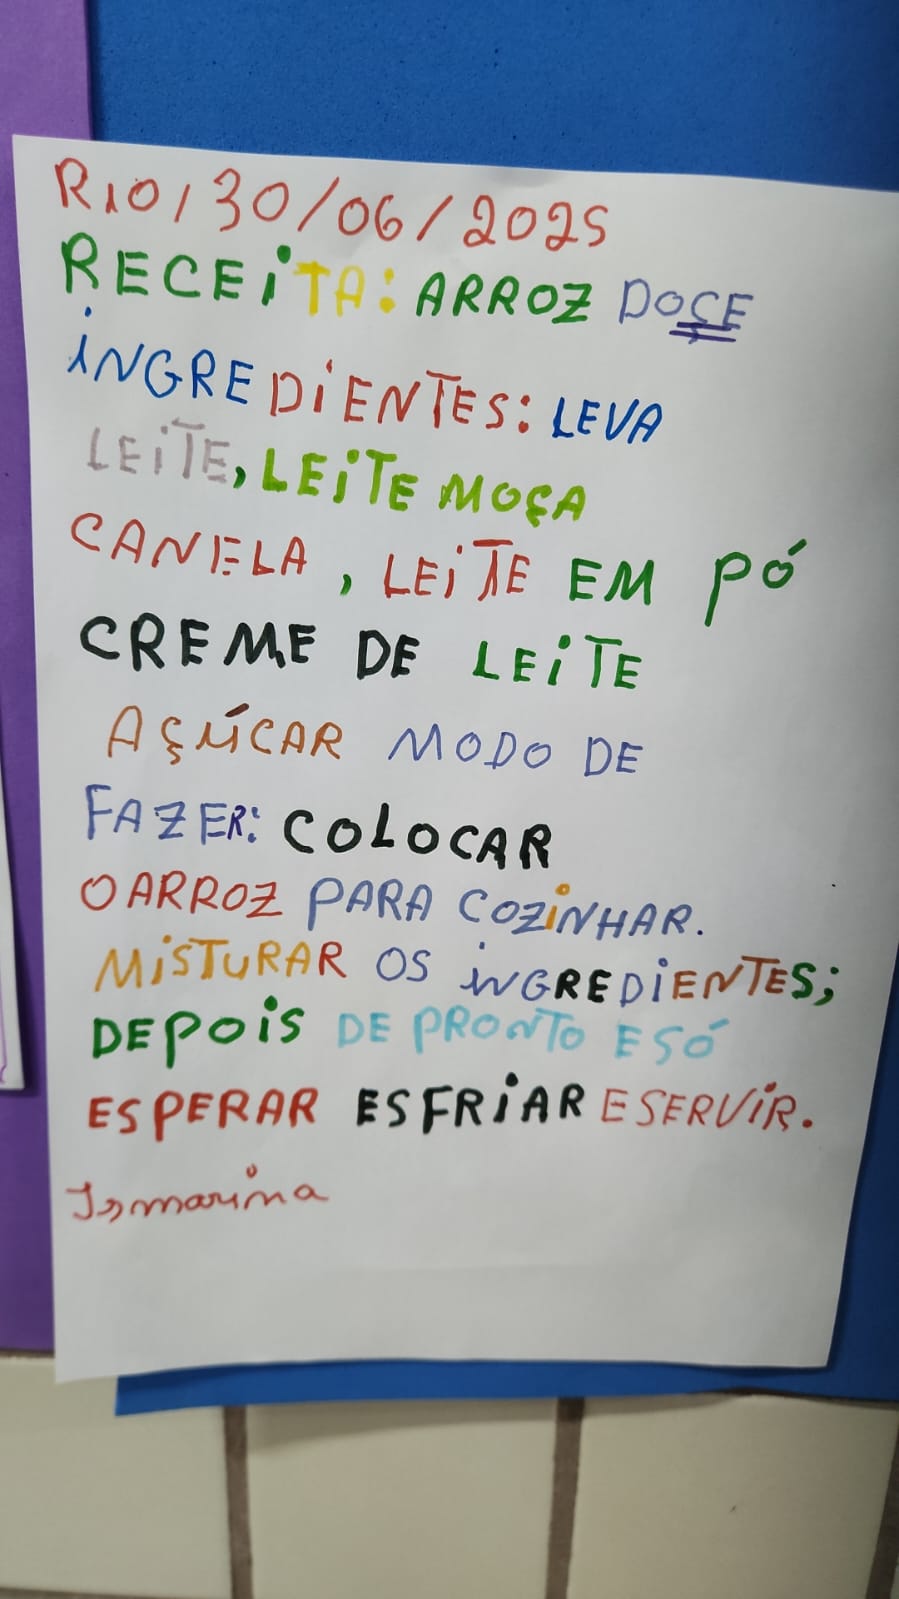 RIO, 30/06/2025
RECEITA: ARROZ DOCE
INGREDIENTES: LEVA
LEITE, LEITE MOÇA
CANELA, LEITE EM PÓ
CREME DE LEITE
AÇÚCAR MODO DE
FAZER: COLOCAR
O ARROZ PARA COZINHAR.
MISTURAR OS INGREDIENTES;
DEPOIS DE PRONTO E SÓ
ESPERAR ESFRIAR E SERVIR.
Ismarina